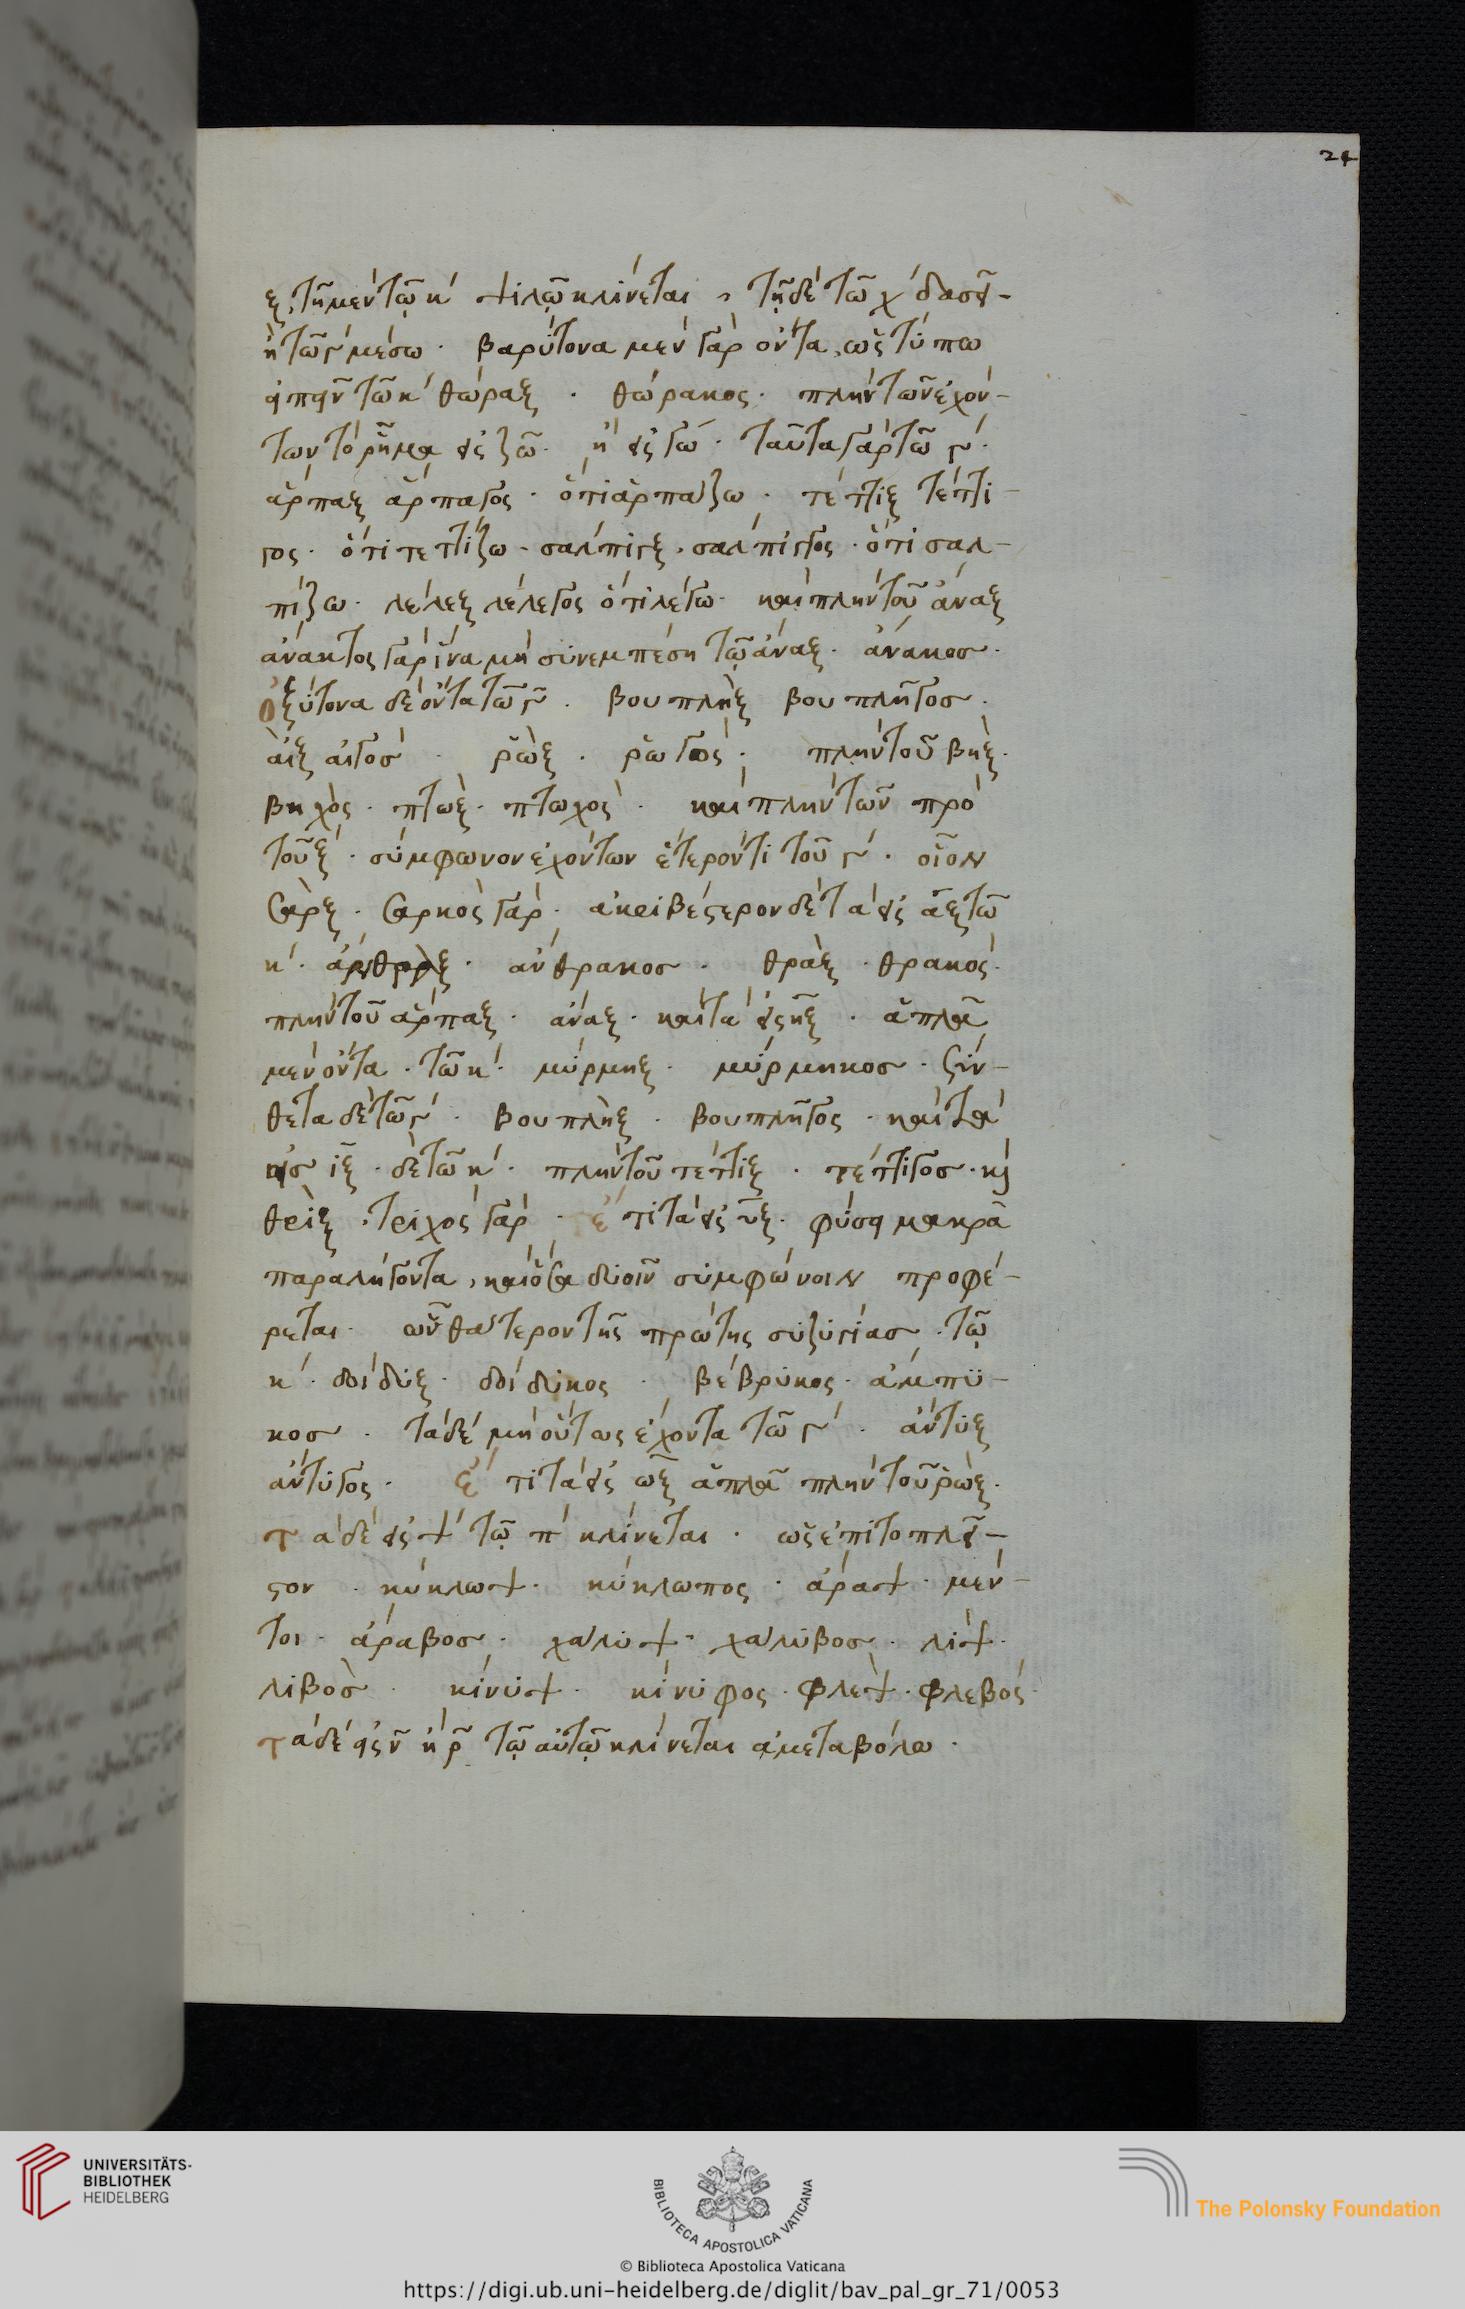 24
ξ, πῆ μὲν τῶ κ´ ψιλῶ κλίνεται, πῆ δὲ τῶ χ´ δασεῖ-
ἢ τῶ γ´ μέσω· βαρύτονα μὲν γὰρ ὄντα, ὡς τύπω
εἰπεῖν τῶ κ´ θώραξ · θώρακος· πλὴν τῶν ἐχόν-
των τὸ ῥῆμα εἰς ζω· ἢ εἰς γω· ταῦτα γὰρ τῶ γ´·
ἅρπαξ ἅρπαγος · ὅτι ἁρπάζω · τέττιξ τέττι-
γος· ὅτι τεττίζω· σάλπιγξ, σάλπιγγος · ὅτι σαλ-
πίζω· λέλεξ λέλεγος ὅτι λέγω· καὶ πλὴν τοῦ ἄναξ
ἄνακτος γὰρ ἵνα μὴ συνεμπέση τῶ ἄναξ· ἄνακος·
Ὀξύτονα δὲ ὄντα τῶ γ´· βουπλὴξ βουπλῆγος·
αἲξ αἰγός · ῥὼξ · ῥωγός· πλὴν τοῦ βὴξ·
βηχὸς · πτὼξ· πτωχὸς · καὶ πλὴν τῶν πρὸ
τοῦ ξ´ · σύμφωνον ἐχόντων ἕτερόν τι τοῦ γ´ · οἷον
σὰρξ · σαρκὸς γάρ· ἀκριβέστερον δὲ τὰ εἰς αξ τῶ
κ´· ἄνθραξ · ἄνθρακος · θρὰξ · θρακός·
πλὴν τοῦ ἅρπαξ · ἄναξ · καὶ τὰ εἰς ηξ · ἁπλᾶ
μὲν ὄντα · τῶ κ´· μύρμηξ · μύρμηκος · σύν-
θετα δὲ τῶ γ´ · βουπλὴξ · βουπλῆγος · καὶ τὰ
εἰς ιξ · δὲ τῶ κ´· πλὴν τοῦ τέττιξ · τέττιγος · καὶ
θρὶξ · τριχὸς γάρ · ἔτι τὰ εἰς υξ · φύσει μακρᾶ
παραλήγοντα, καὶ ὅσα δυοῖν συμφώνοιν προφέ-
ρεται· ὧν θάτερον τῆς πρώτης συζυγίας · τῶ
κ´ · δοίδυξ · δοίδυκος · βέβρυκος · ἄμπϋ-
κος · τὰ δὲ μὴ οὕτως ἔχοντα τῶ γ´ · ἄντυξ
ἄντυγος · ἔτι τὰ εἰς ωξ ἁπλᾶ πλὴν τοῦ ῥώξ·
τὰ δὲ εἰς ψ´ τῶ π´ κλίνεται · ὡς ἐπὶ τὸ πλεῖ-
στον · κύκλωψ · κύκλωπος · ἄραψ · μέν-
τοι · ἄραβος · χάλυψ · χάλυβος · λὶψ ·
λιβὸς · κίνυψ · κίνυφος · φλὲψ · φλεβός·
τὰ δὲ εἰς ν ἢ ρ τῶ αὐτῶ κλίνεται ἀμεταβόλω ·
UNIVERSITÄTS-
BIBLIOTHEK
HEIDELBERG
BIBLIOTECA APOSTOLICA VATICANA
The Polonsky Foundation
© Biblioteca Apostolica Vaticana
https://digi.ub.uni-heidelberg.de/diglit/bav_pal_gr_71/0053